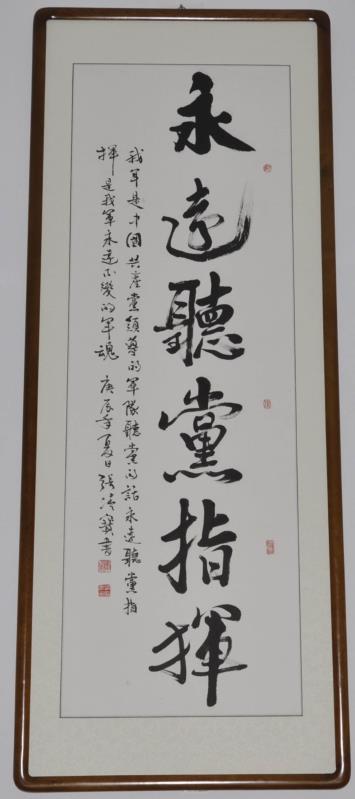 永遠聽黨指揮
我軍是中國共產黨領導的軍隊聽黨的話永遠聽黨指
揮是我軍永遠不變的軍魂 庚辰年夏日張
書